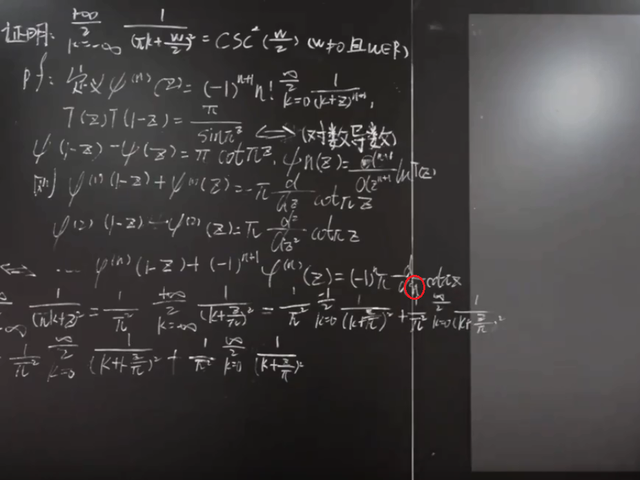 证明: \sum_{k=-\infty}^{+\infty} \frac{1}{(\pi k+\frac{w}{2})^2} = CSC^2(\frac{w}{2}) (w≠0 且 w∈R)
pf: 定义 \psi^{(n)}(z) = (-1)^{n+1} n! \sum_{k=0}^{\infty} \frac{1}{(k+z)^{n+1}},
T(z)T(1-z) = \frac{\pi}{\sin\pi z} ⟺ (对数导数)
\psi(1-z) - \psi(z) = \pi \cot\pi z. \psi^n(z) = \frac{d^{n+1}}{dz^{n+1}} \ln T(z)
则 \psi^{(1)}(1-z) + \psi^{(1)}(z) = -\pi \frac{d}{dz} \cot\pi z
\psi^{(2)}(1-z) - \psi^{(2)}(z) = \pi \frac{d^2}{dz^2} \cot\pi z
⟺ ... \psi^{(n)}(1-z) + (-1)^{n+1} \psi^{(n)}(z) = (-1)^n \pi \frac{d}{d n} \cot\pi z
\frac{1}{(\pi k+z)^2} = \frac{1}{\pi^2} \sum_{k=-\infty}^{+\infty} \frac{1}{(k+\frac{z}{\pi})^2} = \frac{1}{\pi^2} \sum_{k=0}^{-1} \frac{1}{(k+\frac{z}{\pi})^2} + \frac{1}{\pi^2} \sum_{k=0}^{\infty} \frac{1}{(k+\frac{z}{\pi})^2}
\frac{1}{\pi^2} \sum_{k=0}^{\infty} \frac{1}{(k+1-\frac{z}{\pi})^2} + \frac{1}{\pi^2} \sum_{k=0}^{\infty} \frac{1}{(k+\frac{z}{\pi})^2}